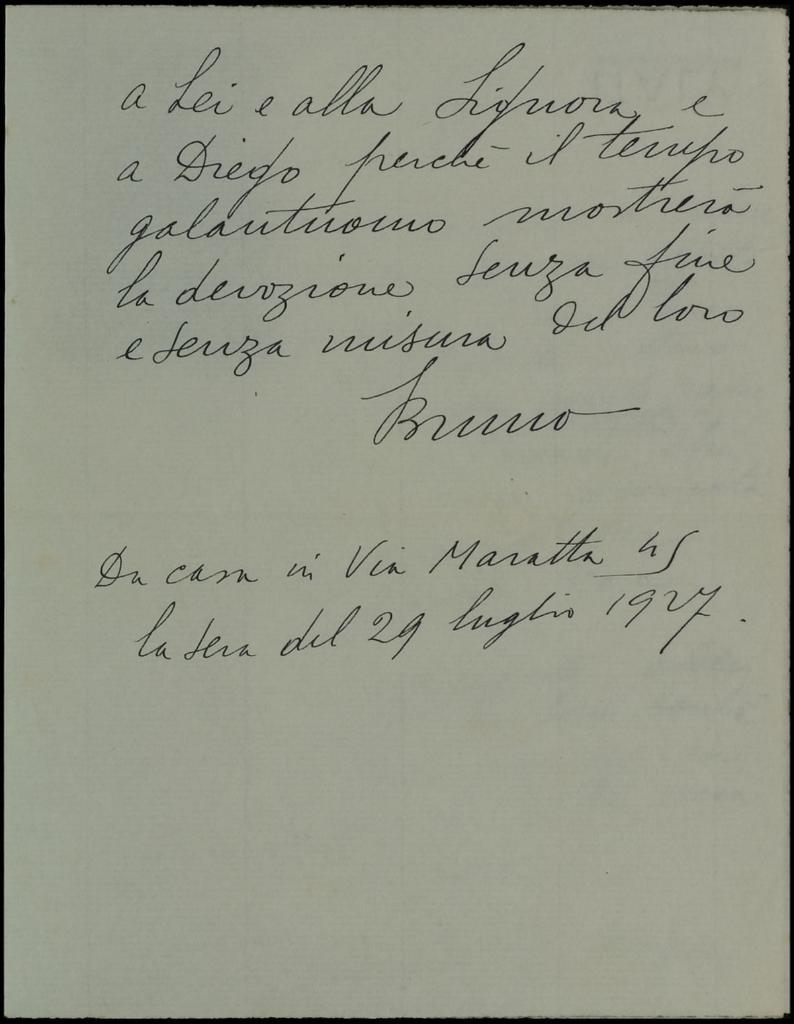 a Lei e alla Signora e
a Diego perchè il tempo
galantuomo mostrerà
la devozione senza fine
e senza misura del loro
Bruno
Da casa in Via Maratta 45
la sera del 29 luglio 1927.